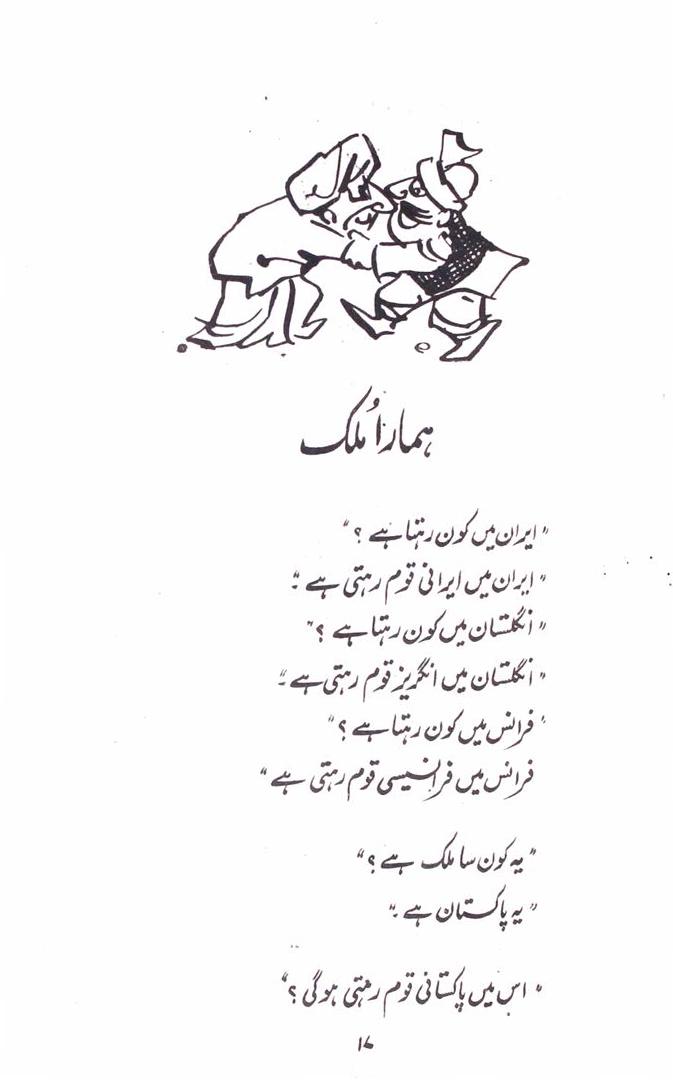 ہمارا مُلک
"ایران میں کون رہتا ہے ؟"
"ایران میں ایرانی قوم رہتی ہے ۔"
"انگلستان میں کون رہتا ہے ؟"
"انگلستان میں انگریز قوم رہتی ہے ۔"
"فرانس میں کون رہتا ہے ؟"
فرانس میں فرانسیسی قوم رہتی ہے"
"یہ کون سا ملک ہے ؟"
"یہ پاکستان ہے ۔"
"اس میں پاکستانی قوم رہتی ہوگی ؟"
۱۷